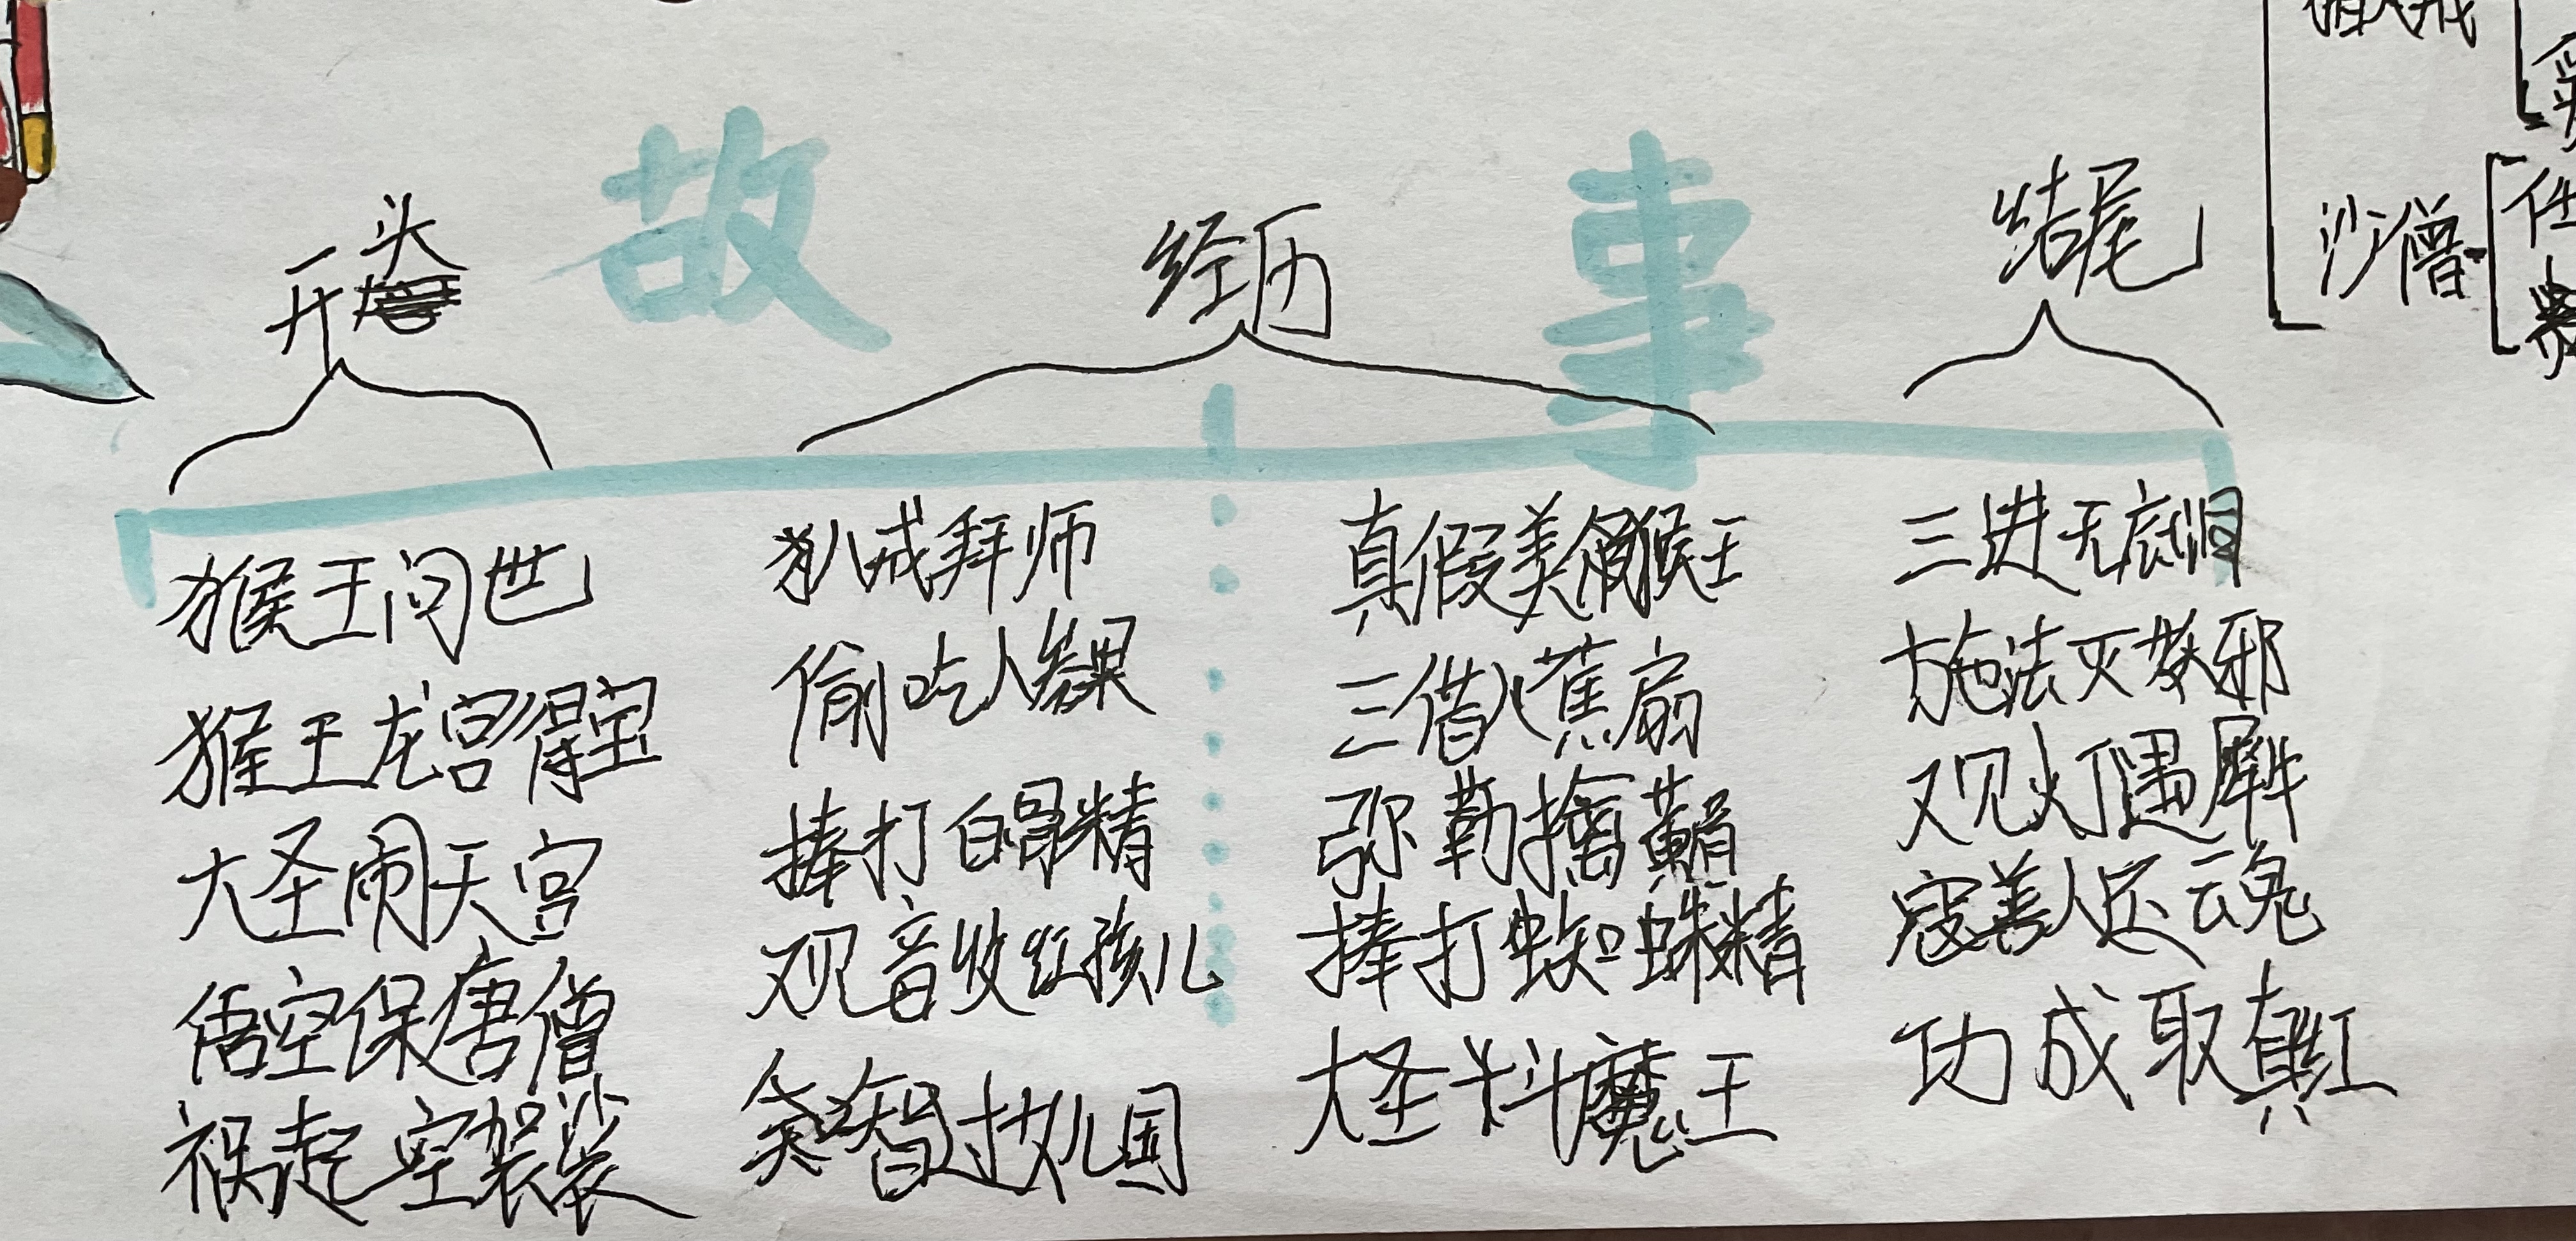 故事
开头
猴王问世
猴王龙宫得宝
大圣闹天宫
悟空保唐僧
祸起空袈裟
经历
八戒拜师
偷吃人参果
捧打白骨精
观音收红孩儿
智过女儿国
真假美猴王
三借八蕉扇
弥勒擒黄眉
捧打蜘蛛精
大圣斗魔王
结尾
三进无底洞
施法灭教邪
观灯遇犀牛
寇善人还魂
功成取真红
沙僧